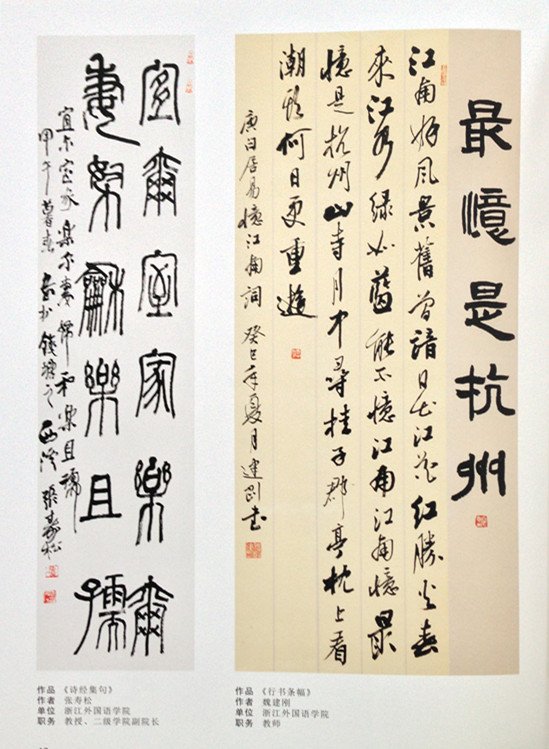 最憶是杭州
江南好風景舊曾諳日出江花紅勝火春
來江水綠如藍能不憶江南江南憶最
憶是杭州山寺月中尋桂子郡亭枕上看
潮頭何日更重遊
唐白居易憶江南詞 癸巳年夏月建剛書
宜爾室家樂爾
妻帑龢樂且孺
宜尔室家樂尔妻帑和樂且孺
甲午暮春書於錢塘之西溪張壽松
作品 《诗经集句》
作者 张寿松
单位 浙江外国语学院
职务 教授、二级学院副院长
作品 《行书条幅》
作者 魏建刚
单位 浙江外国语学院
职务 教师